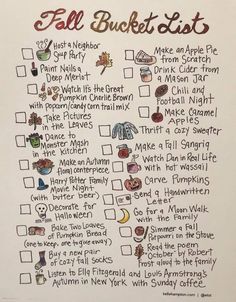 Fall Bucket List
Host a Neighbor
Soup Party
Paint Nails a
Deep Merlot
Watch It's the Great
Pumpkin Charlie Brown
with popcorn/candy corn trail mix
Take Pictures
in the Leaves
Dance to
Monster Mash
in the kitchen
Make an Autumn
floral centerpiece
Harry Potter Family
Movie Night
(with butter beer)
Decorate for
Halloween
Bake Two Loaves
of Pumpkin Bread
(one to keep, one to give away)
Buy a new pair
of cozy fall socks
Make an Apple Pie
from Scratch
Drink Cider from
a Mason Jar
Chili and
Football Night
Make Caramel
Apples
Thrift a cozy sweater
Make a Fall Sangria
Watch Dan in Real Life
with hot wassail
Carve Pumpkins
Send a Handwritten
Letter
Go for a Moon Walk
with the Family
Simmer a Fall
Potpourri on the Stove
Read the poem
October by Robert
Frost aloud to the family
Listen to Ella Fitzgerald and Louis Armstrong's
Autumn in New York with Sunday coffee
kellehampton.com | @etst